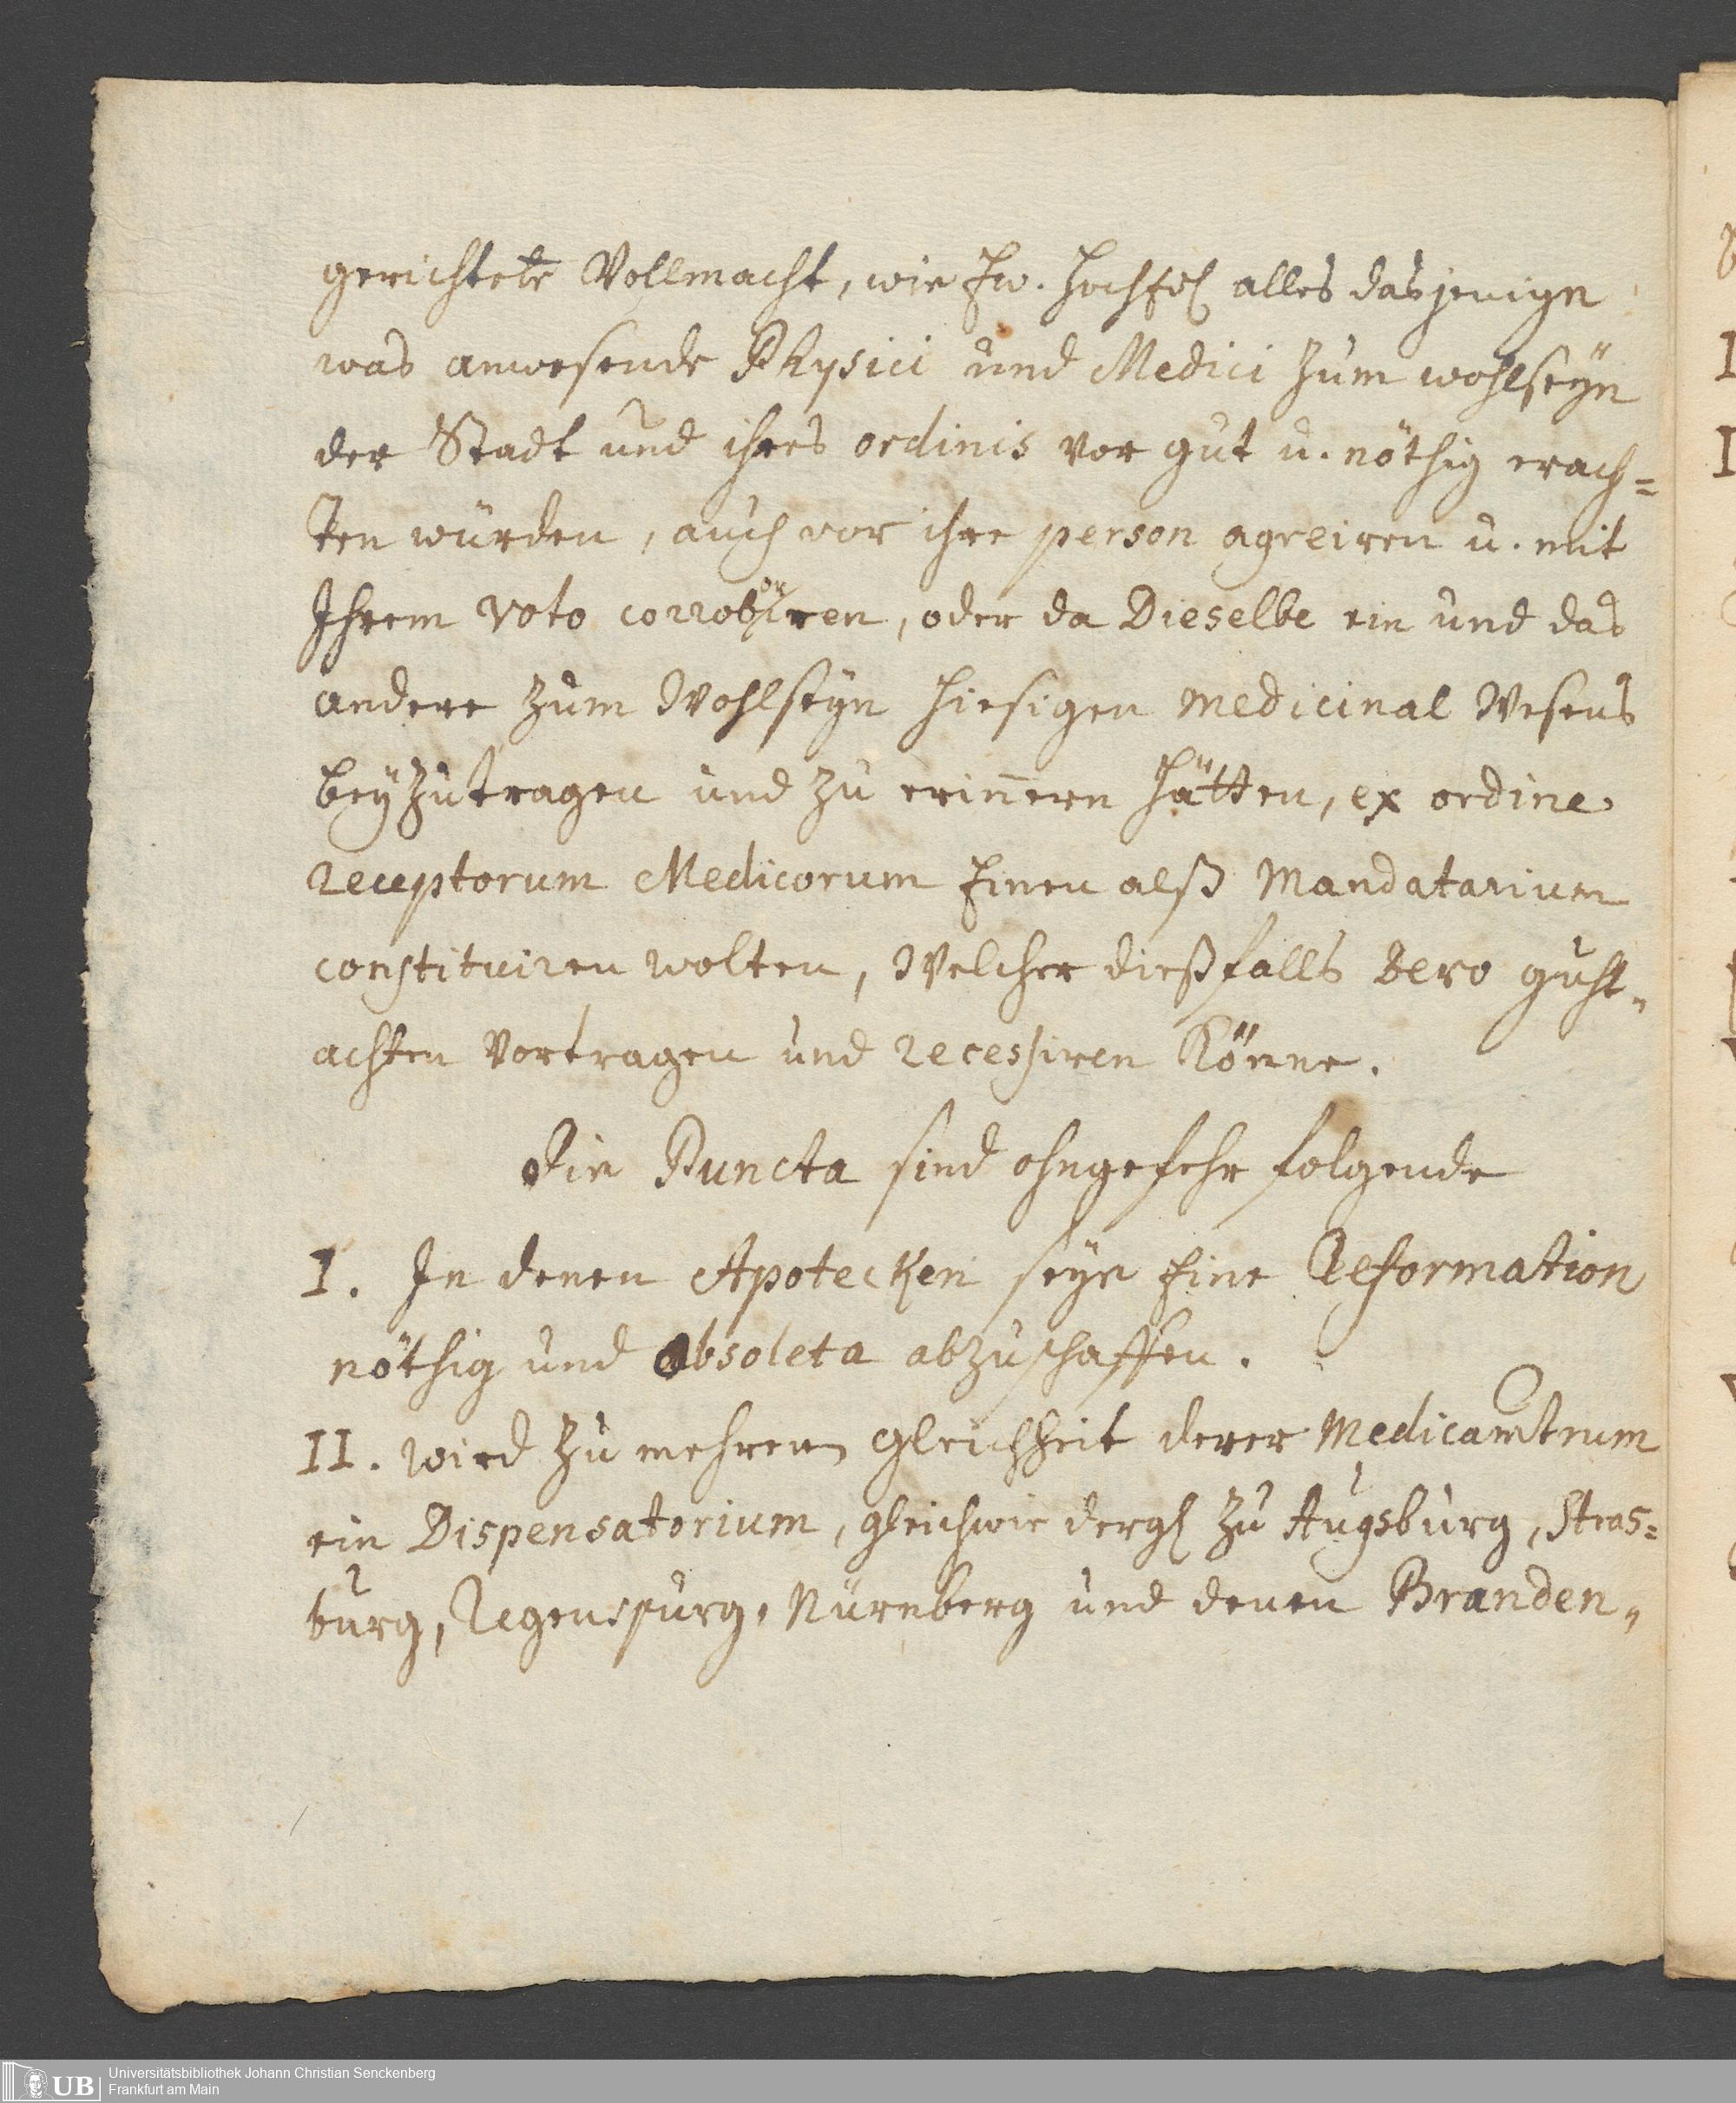 gerichtete Vollmacht, wie Ew. Hochedl alles dasjenige
was anwesende Physici und Medici zum wohlseÿn
der Stadt und ihres ordinis vor gut u. nöthig erach=
ten würden, auch vor ihre person agreiren u. mit
Ihrem voto corroboriren, oder da Dieselbe ein und das
andere zum Wohlseÿn hiesigen medicinal Wesens
beÿzutragen und zu erin̄ern hätten, ex ordine
receptorum Medicorum Einen alß Mandatarium
constituiren wolten, Welcher dießfalls dero guht„
achten vortragen und recessiren könne.
Die Puncta sind ohngefehr folgende
I. In denen Apotecken seÿe Eine Reformation
nöthig und absoleta abzuschaffen.
II. wird zu mehrern gleichheit derer Medicamtrum
ein Dispensatorium, gleichwie dergl zu Augsburg, Stras=
burg, Regenspurg, Nürnberg und denen Branden„
UB
Universitätsbibliothek Johann Christian Senckenberg
Frankfurt am Main